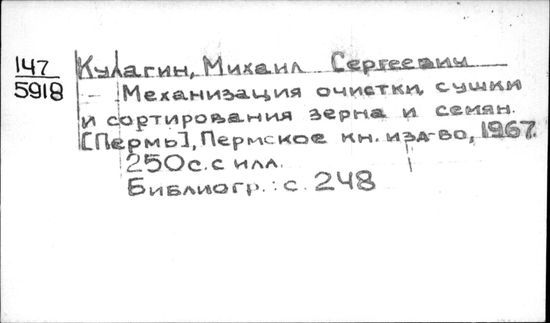 147
5918
Кулагин, Михаил Сергеевич
Механизация очистки, сушки
и сортирования зерна и семян.
[Пермь], Пермское кн. изд-во, 1967.
250с. с илл.
Библиогр.: с. 248